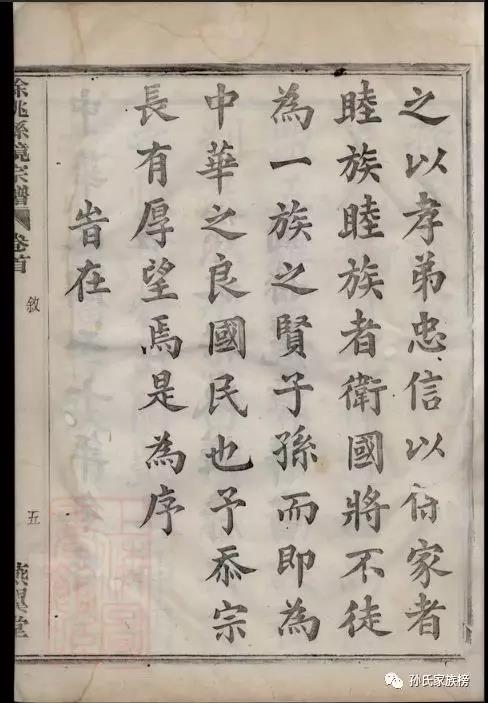 之以孝弟忠信以家者
睦族睦族者衛國將不徒
為一族之賢子孫而即為
中華之良國民也予忝宗
長有厚望焉是為序
旹在
餘姚孫境宗譜 卷首 敘 五 燕翼堂
孙氏家族榜